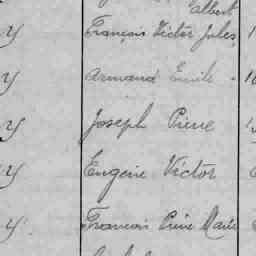 Albert
y François Victor Jules 1
y Armand Emile - 1
y Joseph Pierre
y Eugène Victor
y François Pierre Marie